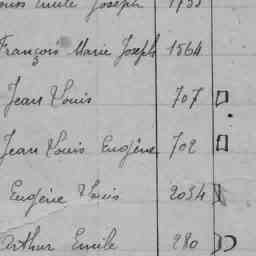 Emile Joseph 1755
François Marie Joseph 1564
Jean Louis 707
Jean Louis Eugène 702
Eugène Louis 2034
Arthur Emile 280